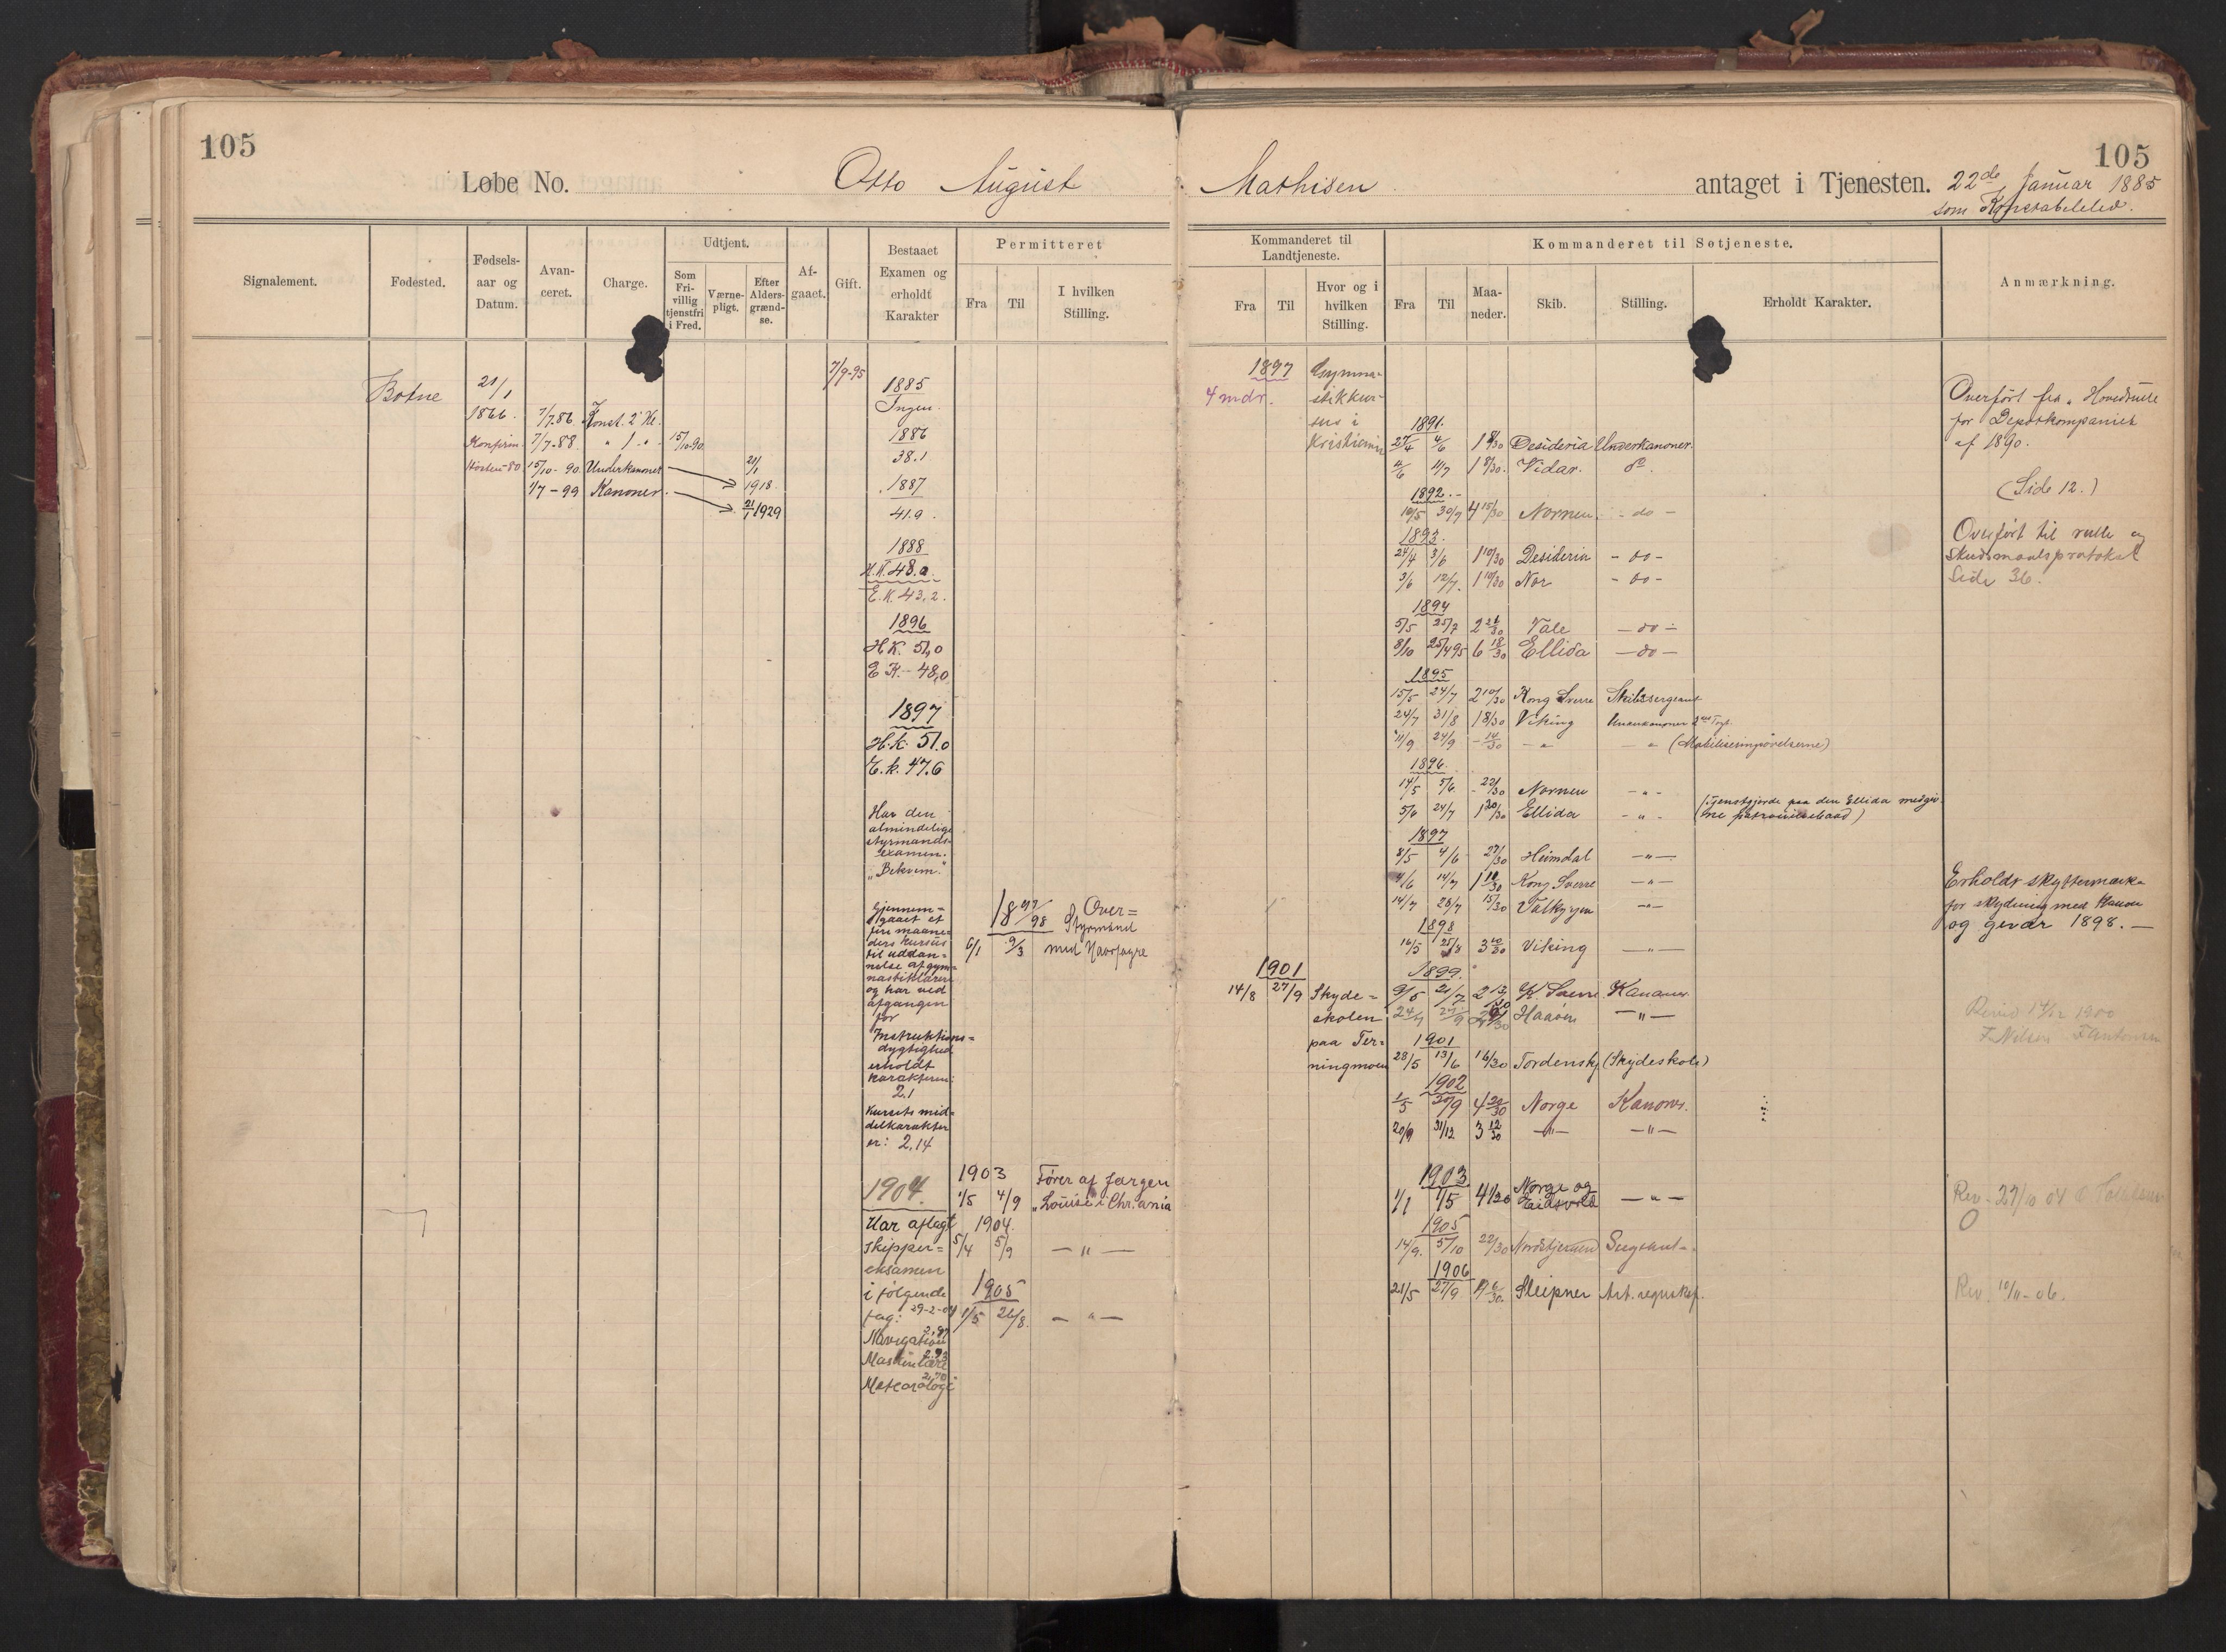 105
Løbe No. Otto August
Signalement.
Fødested.
Fødsels-
aar og
Datum.
Avan-
ceret.
Charge.
Udtjent.
Som
Fri-
villig
tjenstfri
i Fred.
Værne-
pligt.
Efter
Alders-
grænd-
se.
Af-
gaaet.
Gift.
Bestaaet
Examen og
erholdt
Karakter
Permitteret
Fra
Til
I hvilken
Stilling.
Botne
21/1
1866.
Konfirm.
Høsten-80
7/7.86. Konst. 2' Kl.
7/7-88 " 1 " 15/10-90
15/10-90 Underkanoner 21/1 1918
1/7-99 Kanoner. 21/1 1929
7/9-95
1885
Ingen.
1886
38.1
1887
41.9.
1888
48.0.
E.K. 43.2.
1896
H.K. 51,0
E.K. 48,0
1897
H.K. 51.0
E.k. 47.6
Har den
almindelige
styrmands-
examen.
"Bekvem."
Gjennem-
gaaet et
fire maane-
ders kursus
til uddan-
nelse af gym-
nastiklærere
og har ved
afgangen
for
Instruktions-
dygtighed
erholdt
karakteren:
2.1
Kursets mid-
delkarakter
er: 2.14
1904.
Har aflagt
skipper-
eksamen
i følgende
fag: 29-2-04
Navigation
Maskinlære 2.93
Meteorologi 2,70
1897/98 Over-
Styrmand
6/1 9/3 med Haarfagre
1903 Fører af færgen
1/5 4/9 "Louise" i Chr.ania
1904.
5/4 5/9 — " —
1905
1/5 26/8. — " —
105
Mathisen antaget i Tjenesten. 22de Januar 1885
som Konstabelelev.
Kommanderet til
Landtjeneste.
Fra
Til
Hvor og i
hvilken
Stilling.
Kommanderet til Søtjeneste.
Fra
Til
Maa-
neder.
Skib.
Stilling.
Erholdt Karakter.
Anmærkning.
1897 Gymna-
4 mdr. stikkur-
sus i
Kristiania
1901
14/8 27/9 Skyde-
skolen
paa Ter-
ningmoen
1891.
27/4 4/6 1 8/30 Desideria Underkanoner.
4/6 11/7 1 8/30. Vidar. do.
1892.-
16/5 30/9 4 15/30 Nornen. - do -
1893.
24/4 3/6 1 10/30 Desideria - do -
3/6 12/7. 1 10/30 Nor - do -
1894
5/5 25/7 2 21/30 Vale — do —
8/10 25/4 95 6 18/30 Ellida — do —
1895
15/5 24/7 2 10/30 Kong Sverre Skibssergeant
24/7 31/8 1 8/30 Viking Underkanoner
11/9 24/9 - 14/30 - " - " (Mobiliseringsøvelserne)
1896.
14/5 5/6 - 22/30 Nornen - " -
5/6 24/7 1 20/30 Ellida - " - (Tjenstgjorde paa den Ellida medgiv-
ne patrouillebaad)
1897
8/5 4/6 27/30 Heimdal — " —
4/6 14/7 1 10/30 Kong Sverre — " —
14/7 28/7 15/30 Valkyrjen — " —
1898
16/5 25/8 3 10/30 Viking — " —
1899.
9/5 21/7 2 13/30 K. Sverre Kanoner
24/7 27/9 Haaren — " —
1901
28/5 13/6 16/30 Tordensk. (Skydeskole)
1902
1/5 20/9 4 20/30 Norge Kanoner.
20/9 31/12 3 12/30 — " — — " —
1903
1/1 1/5 4 1/30 Norge og
Eidsvold — " —
1905
14/9. 5/10 22/30 Nordstjernen Sergeant.
1906
21/5 27/9 Sleipner Art. regnskf.
Overført fra "Hovedrulle
for Depotkompaniet
af 1890.
(Side 12.)
Overført til rulle og
skudsmaalsprotokol
Side 36.
Erholdt skyttermærke
for skydning med Kanon
og gevær 1898. —
1900
Nilsen
Rev. 27/10 04
Rev. 10/11-06.